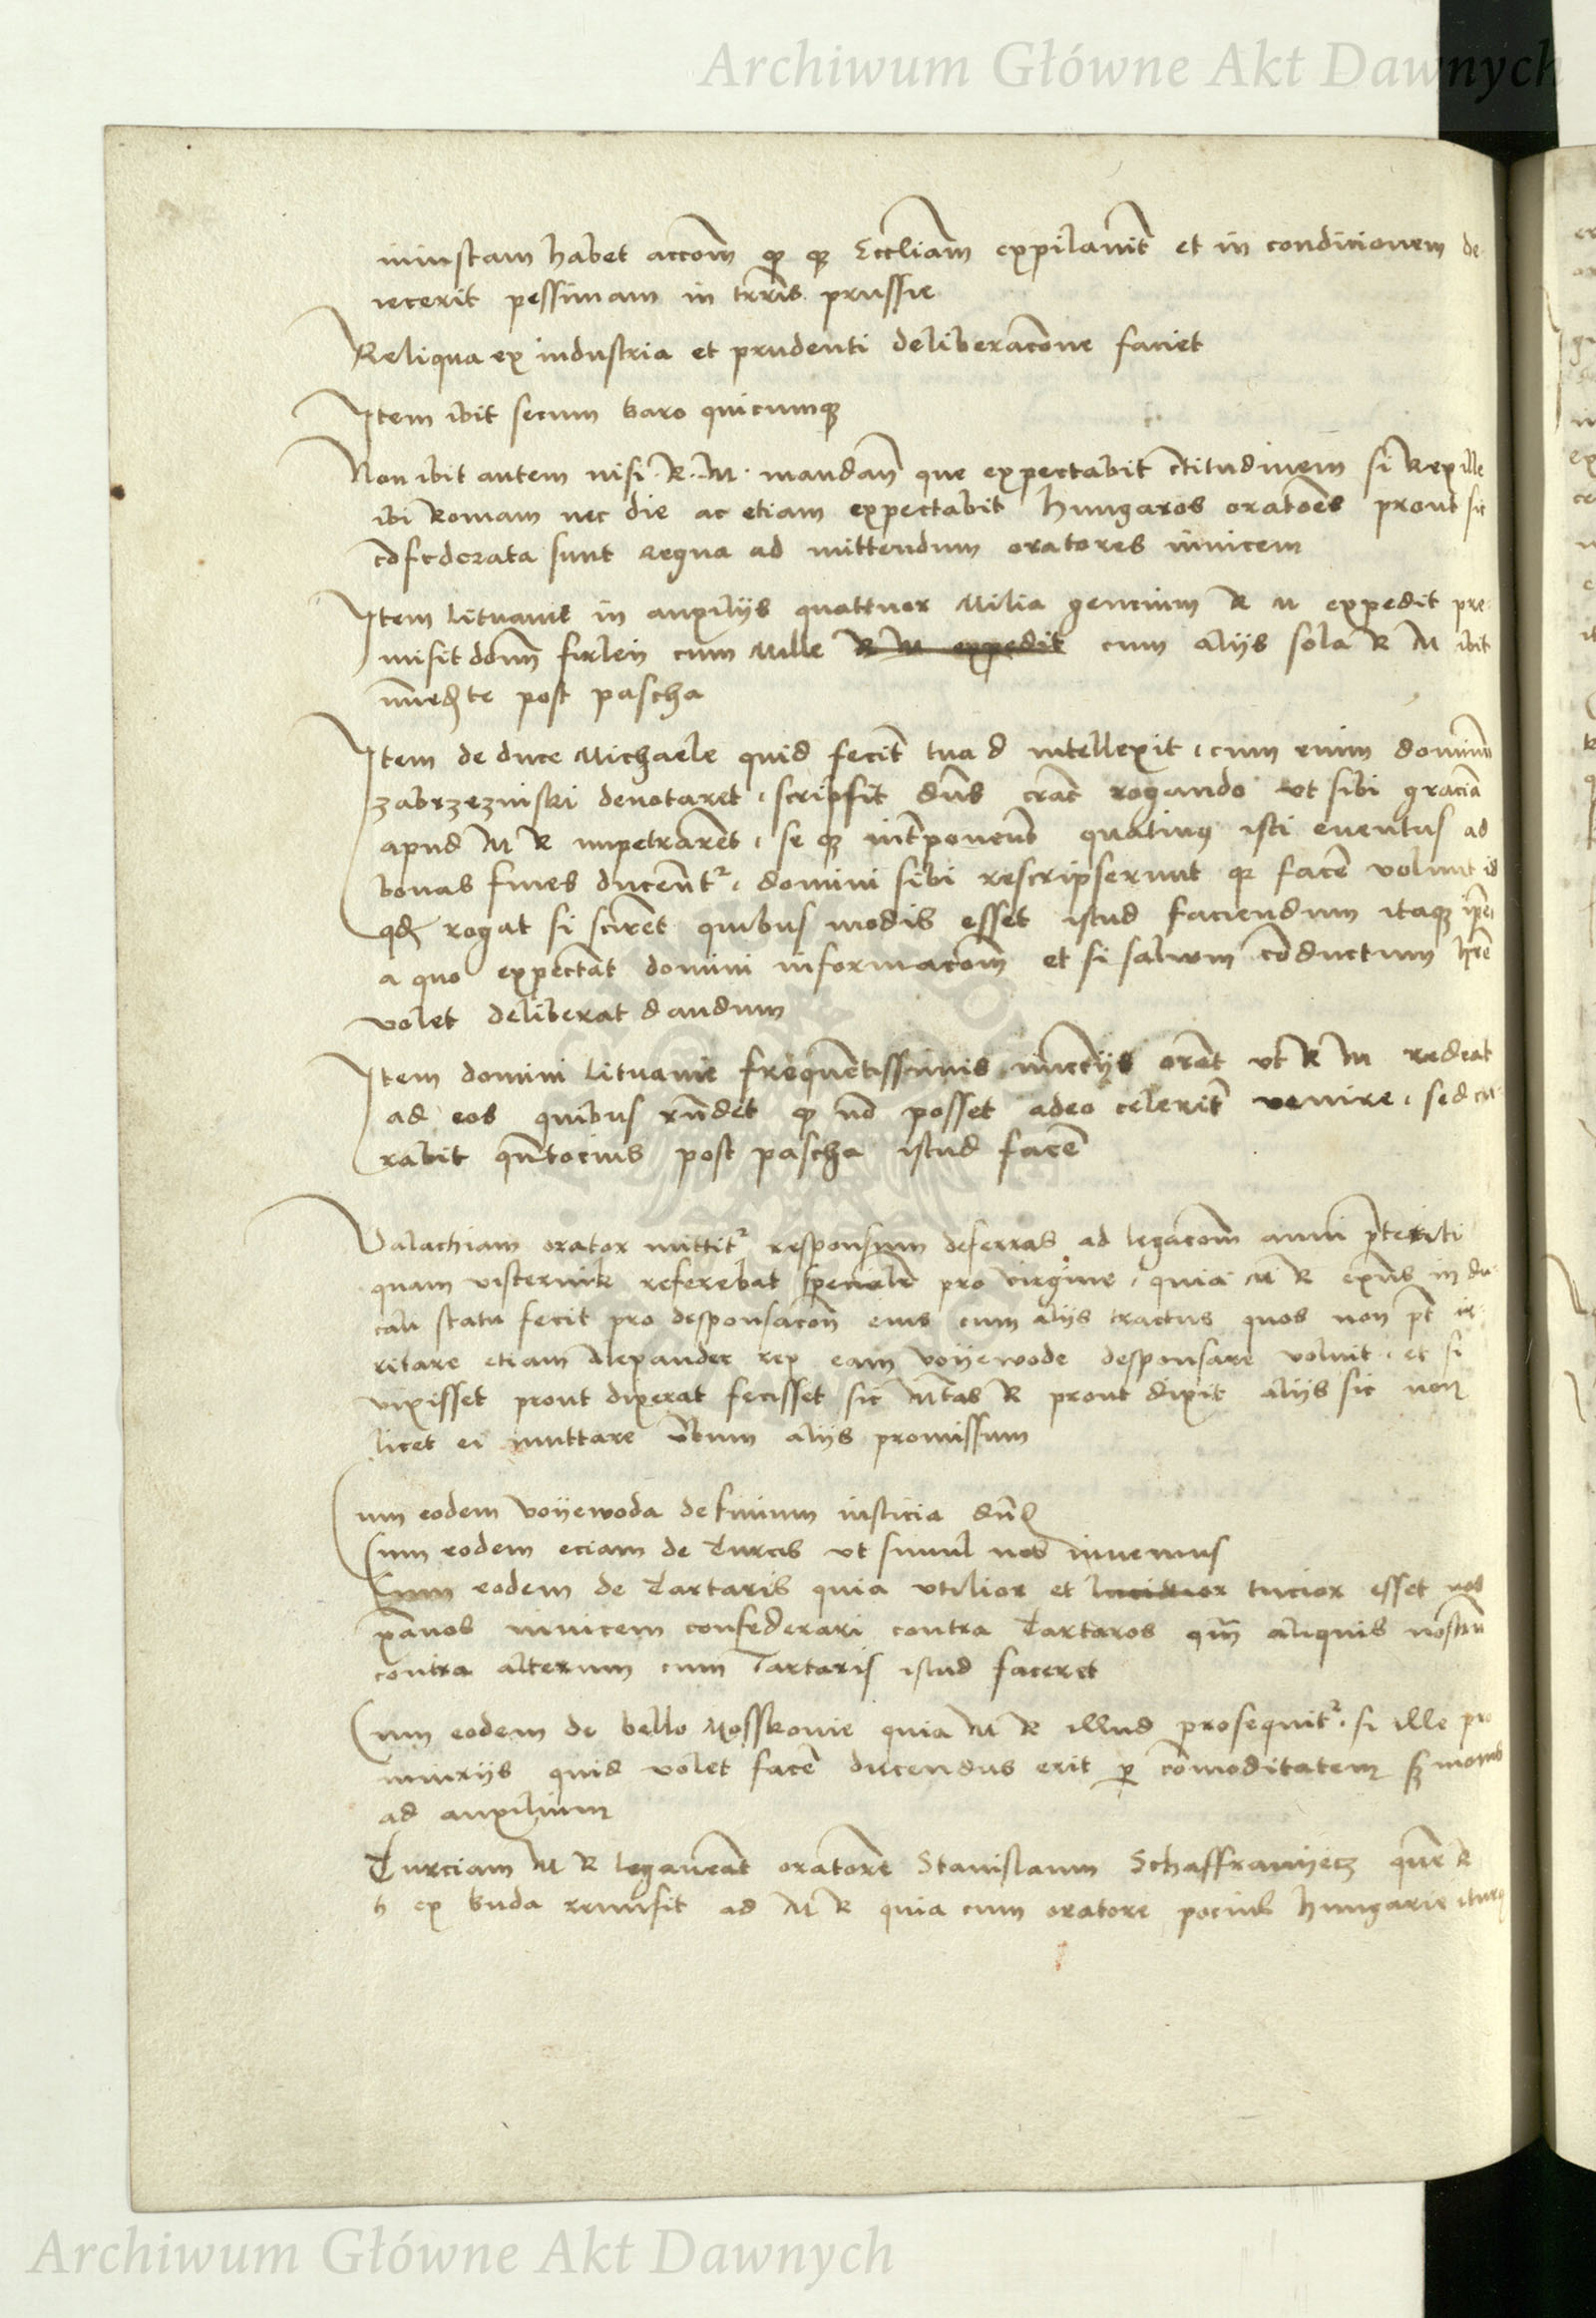 Archiwum Główne Akt Dawnych
iniustam habet accom̅ Eccliam̅ expilauit et in condicionem de-
iecerit pessimam in trr̅is prussie
Reliqua ex industria et prudenti deliberacõne faciet
Item ibit secum baro quicumq̨
Non ibit autem nisi R. M. mandan̅ que expectabit c̅titudinem si Rex ille
ibi Romam nec die ac etiam expectabit hungaros orato̅es prout sic
co̅federata sunt Regna ad mittendum oratores inuicem
Item lituanie in auxilijs quattuor Milia gencium R M expedit pre-
misit dom̅ firleij cum Mille R M expedit cum alijs sola R M ibit
post pascha
Item de duce Michaele quid fecit tua d intellexit cum enim dominum
zabrzezinski deuotaret scripsit dn̅s rogando vt sibi gracia̅
apud M R impetrare̅t se q̨ int̅ponent quatinus isti euentus ad
bonas fines ducent̅r domini sibi rescripserunt q̨ face̅ volunt id
qd̨ rogat si scirent quibus modis esset istud faciendum itaq̨
a quo expectat domini informacom̅ et si saluum co̅ductum
volet deliberat dandum
Item domini lituanie freque̅tissimis nuncijs orent vt R M redeat
ad eos quibus rn̅det q no̅ posset adeo celerit̅ venire sed cu-
rabit qn̅tocius post pascha istud face̅
Valachiam orator mittit̅r responsum deferras ad legacom̅ anni p̅teriti
quam visternik referebat speciale pro virgine quia M R exn̅s in du-
cali statu fecit pro desponsacon̅ eius cum alijs tractus quos non p̅t ir-
ritare etiam Alexander rex eam voijewode desponsare voluit et si
vixisset prout dixerat fecisset sic M̅tas R prout dixit alijs sic non
licet ei muttare v̅bum alijs promissum
Cum eodem voijewoda de finium iusticia
Cum eodem eciam de Turcis vt simul nos iuuemus
Cum eodem de Tartaris quia vtilior et tucior esset nos
xp̅anos inuicem confederari contra Tartaros qm̅ aliquis nostru̅
contra alterum cum Tartaris istud faceret
Cum eodem de bello Mosskouie quia M R illud prosequit̅r si ille pro
iniurijs quid volet face̅ ducendus erit per co̅moditatem
ad auxilium
Turciam M R legauerat oratore̅ Stanislaum Schaffranijecz que̅ R
h ex buda remisit ad M R quia cum oratore pocius hungarie
Archiwum Główne Akt Dawnych